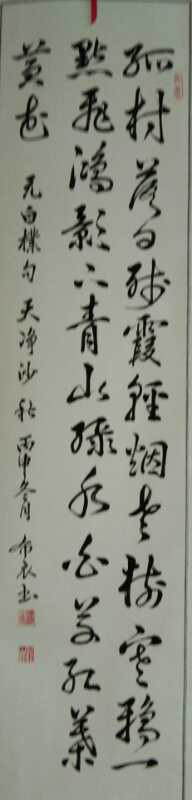 孤村落日残霞轻烟老树寒鸦一
點飛鴻影下青山綠水白草红葉
黄花
元白樸句天净沙秋丙申冬月布衣书